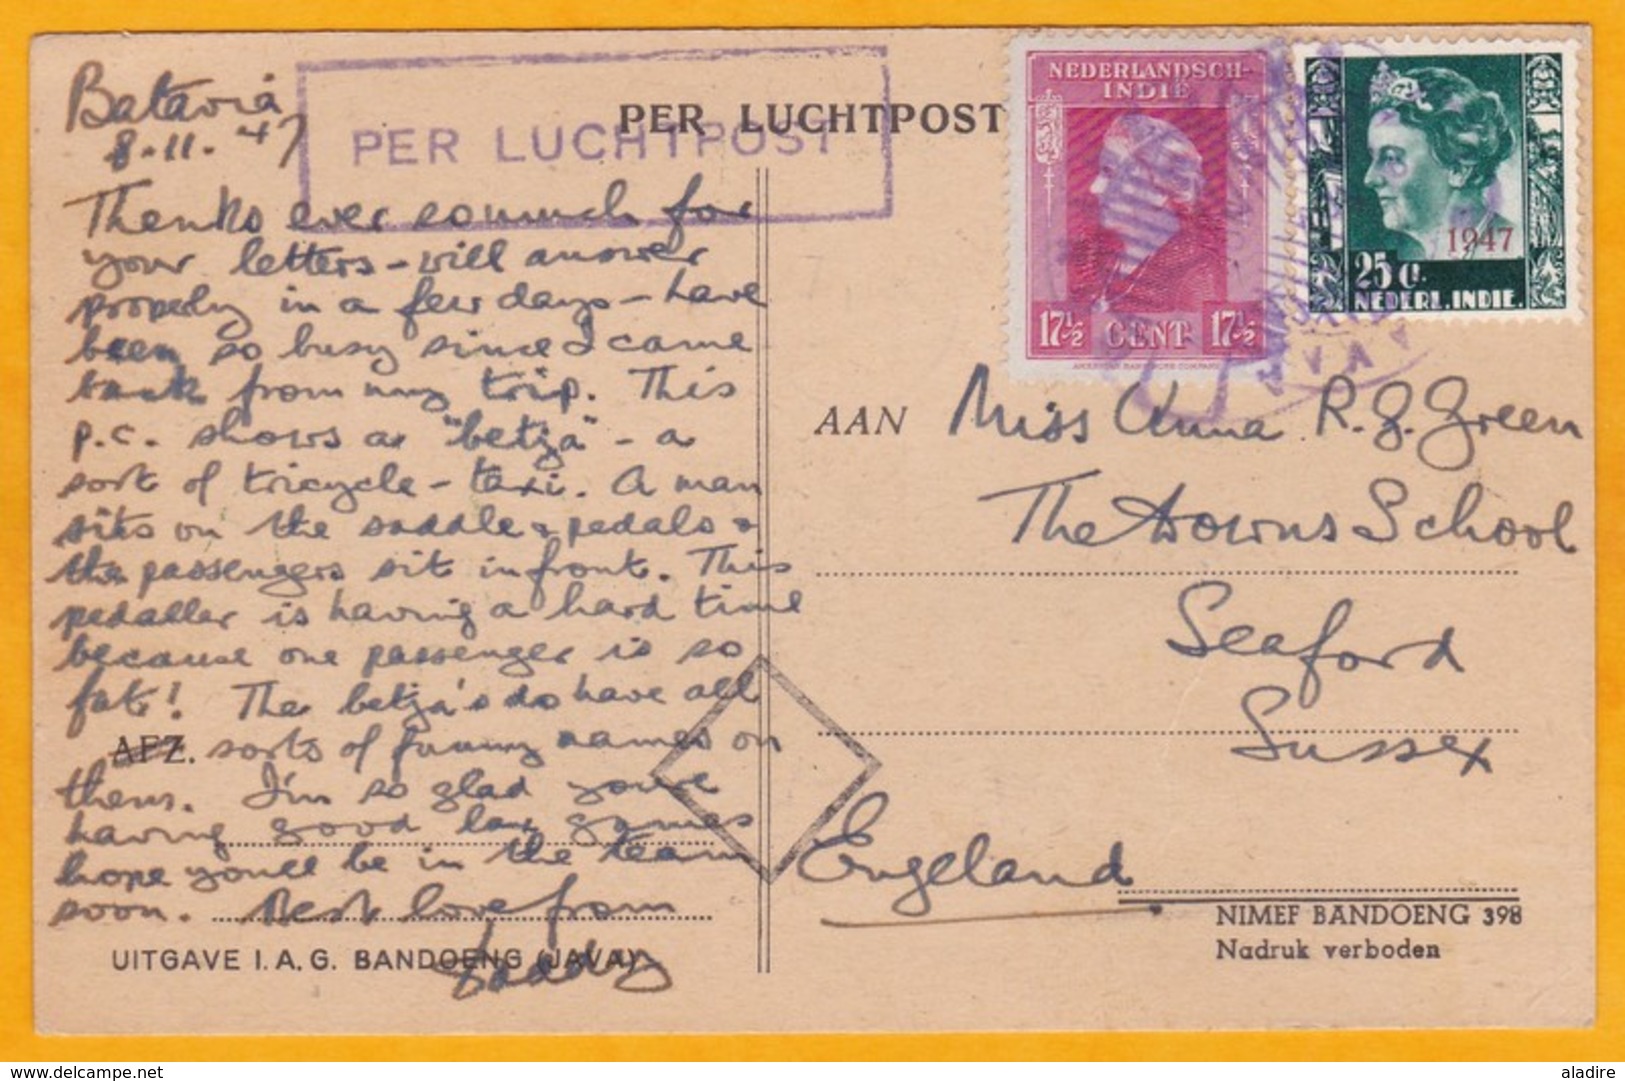 Batavia
8.11.47
PER LUCHTPOST
PER LUCHTPOST
NEDERLANDSCH-
INDIË
17½ CENT 17½
1947
25 C.
NEDERL. INDIE.
Thanks ever so much for
your letters - will answer
properly in a few days - have
been so busy since I came
back from my trip. This
p.c. shows a "betja" - a
sort of tricycle - taxi. A man
sits on the saddle & pedals &
the passengers sit in front. This
pedaller is having a hard time
because one passenger is so
fat! The betja's do have all
AFZ. sorts of funny names on
them. I'm so glad you're
having good lax games
hope you'll be in the team
soon. Best love from
Daddy
UITGAVE I. A. G. BANDOENG (JAVA)
AAN Miss Anna R. G. Green
The Downs School
Seaford
Sussex
Engeland
NIMEF BANDOENG 398
Nadruk verboden
delcampe.net
aladire